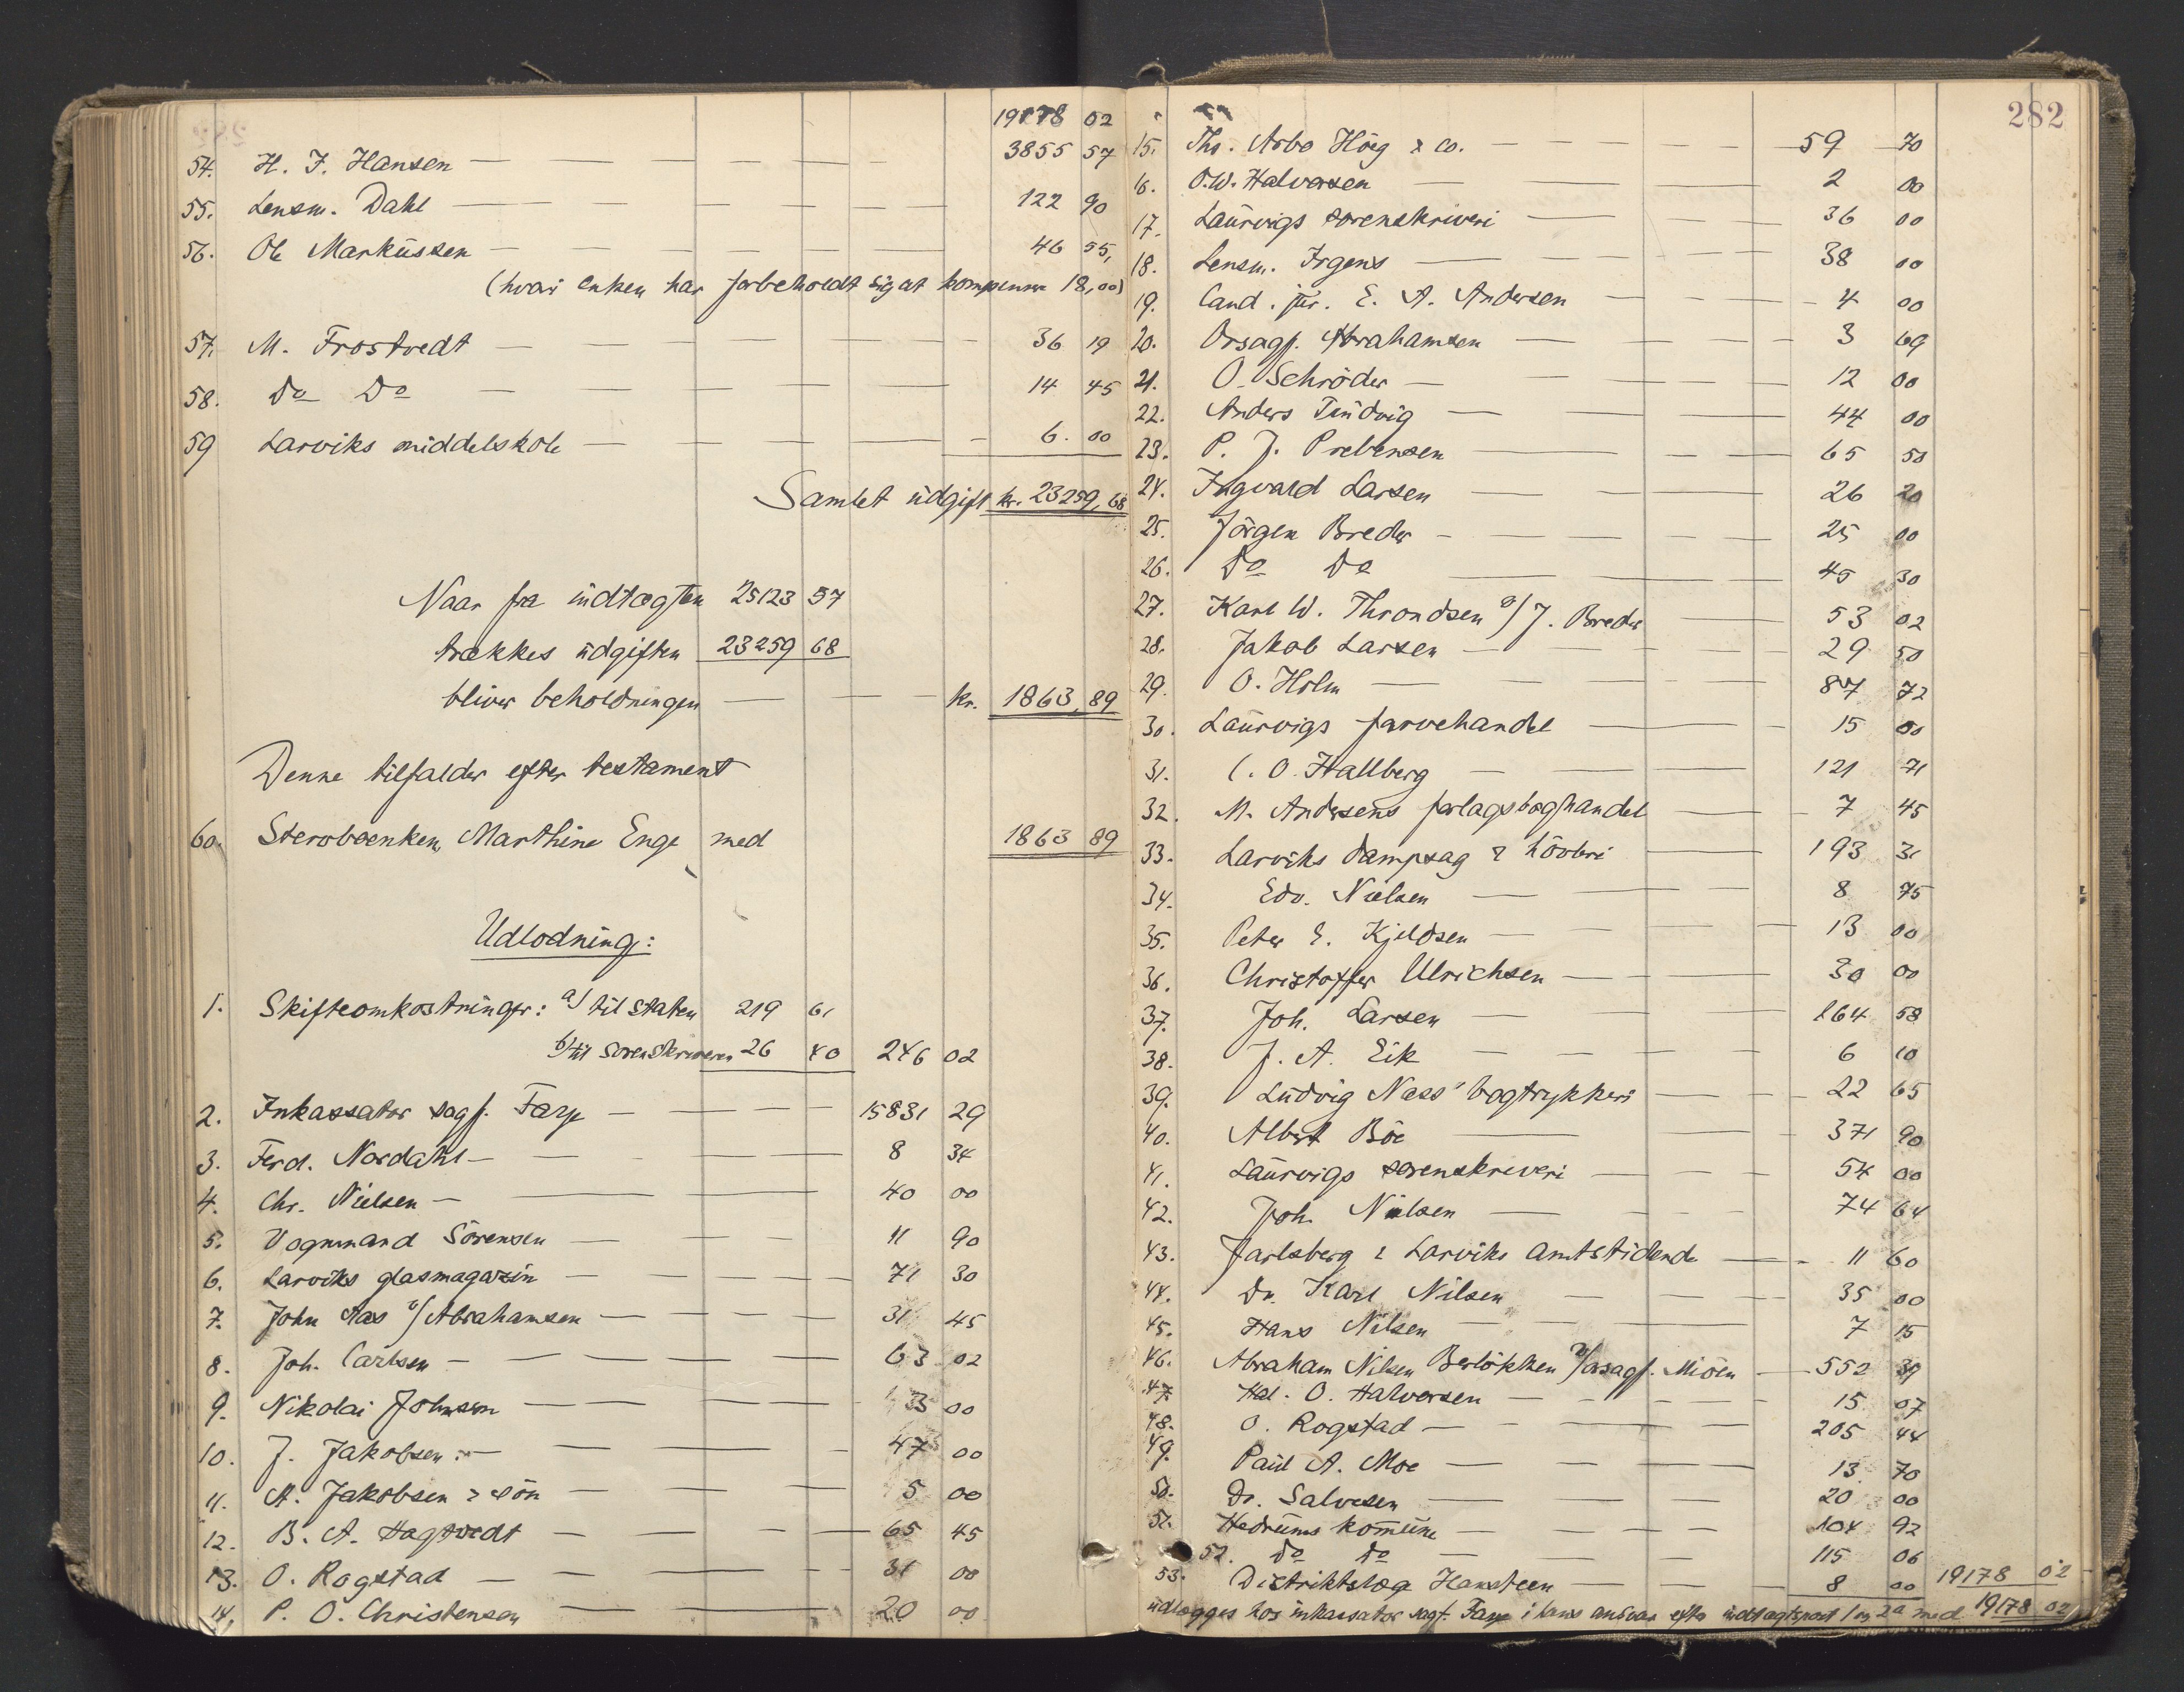 19178 02
54. H. F. Hansen — 3855 57
55. Lensm. Dahl — 122 90
56. Ole Markussen — 46 55,
(hvori enken har forbeholdt sig at kompensere 18,00)
57. M. Frostvedt — 36 19
58. Do Do — 14 45
59 Larviks middelskole — 6. 00
Samlet udgift kr. 23259,68
Naar fra indtægten 25123 57
trækkes udgiften 23259 68
bliver beholdningen — kr. 1863,89
Denne tilfalder efter testament
60. Sterboenken Marthine Enge med 1863 89
Udlodning:
1. Skifteomkostninger: a/ til staten 219 61
b/ til sorenskriveren 26 40 246 02
2. Inkassator sagf. Farp — 15831 29
3. Ferd. Nordahl — 8 34
4. Chr. Nielsen — 40 00
5. Vognmand Sörensen — 11 90
6. Larviks glasmagazin — 71 30
7. John Aas v/ Abrahamsen — 31 45
8. Joh. Carlsen — 63 02
9. Nikolai Johnsen — 35 00
10. J. Jakobsen — 47 00
11. A. Jakobsen & sön — 5 00
12. B. A. Hagtvedt — 65 45
13. O. Rogstad — 31 00
14. P. O. Christensen — 20 00
282
15. Ths. Arbo Höeg & co. — 59 70
16. O. W. Halvorsen — 2 00
17. Laurvigs sorenskriveri — 36 00
18. Lensm. Irgens — 38 00
19. Cand. jur. E. A. Andersen — 4 00
20. Orsagf. Abrahamsen — 3 69
21. O. Schröder — 12 00
22. Anders — 44 00
23. P. J. Prebensen — 65 50
24. Ingvald Larsen — 26 20
25. Jörgen Breder — 25 00
26. Do Do — 45 30
27. Karl W. Throndsen a/ J. Breder — 53 02
28. Jakob Larsen — 29 50
29. O. Holm — 87 72
30. Laurvigs farvehandel — 15 00
31. C. O. Hallberg — 121 71
32. M. Andersens forlagsboghandel — 7 45
33. Larviks dampsag & hövleri — 193 31
34. Edv. Nielsen — 8 75
35. Peter E. Kjeldsen — 13 00
36. Christoffer Ulrichsen — 30 00
37. Joh. Larsen — 164 58
38. J. A. Eik — 6 10
39. Ludvig Næss' bogtrykkeri — 22 65
40. Albert Böe — 371 90
41. Laurvigs sorenskriveri — 54 00
42. Joh. Nilsen — 74 64
43. Jarlsberg & Larviks amtstidende — 11 60
44. Dr. Karl Nilsen — 35 00
45. Hans Nilsen — 7 15
46. Abraham Nilsen Berlökken v/ orsagf. Mioen — 552 39
47. Hal. O. Halvorsen — 15 07
48. O. Rogstad — 205 44
49. Paul A. Moe — 13 70
50. Dr. Salvesen — 20 00
51. Hedrums komune — 104 92
52. Do Do — 115 06
53. Distriktslæge Hansteen — 8 00 19178 02
udlægges hos inkassator sagf. Farp i hans ansvar efter indtægtspost 1 og 2a med 19178 02